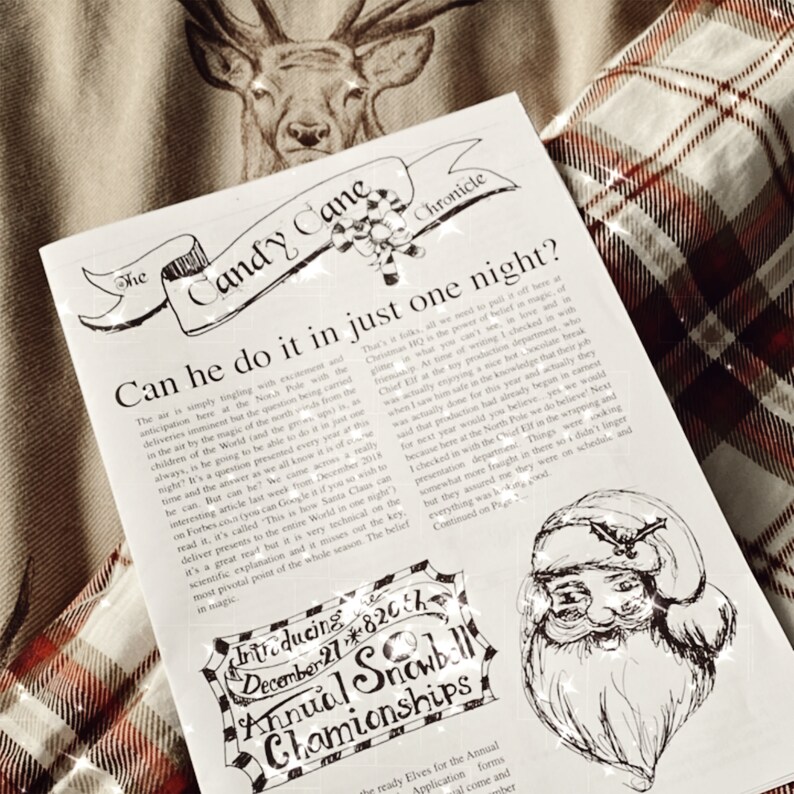 The Candy Cane Chronicle
Can he do it in just one night?
The air is simply tingling with excitement and
anticipation here at the North Pole with the
deliveries imminent but the question being carried
in the air by the magic of the north winds from the
children of the World (and the grown ups) is, as
always, is he going to be able to do it in just one
night? It's a question presented every year at this
time and the answer as we all know it is of course
he can. But can he? We came across a really
interesting article last week from December 2018
on Forbes.com (you can Google it if you so wish to
read it, it's called 'This is how Santa Claus can
deliver presents to the entire World in one night')
it's a great read but it is very technical on the
scientific explanation and it misses out the key,
most pivotal point of the whole season. The belief
in magic.
That's it folks, all we need to pull it off here at
Christmas HQ is the power of belief in magic, of
glitter, in what you can't see, in love and in
friendship. At time of writing I checked in with
Chief Elf in the toy production department, who
was actually enjoying a nice hot chocolate break
when I saw him safe in the knowledge that their job
was actually done for this year and actually they
said that production had already begun in earnest
for next year would you believe...yes we would
because here at the North Pole we do believe! Next
I checked in with the Chief Elf in the wrapping and
presentation department. Things were looking
somewhat more fraught in there so I didn't linger
but they assured me they were on schedule and
everything was looking good.
Continued on Page
Introducing the
December 27 * 820th
Annual Snowball
Chamionships
the ready Elves for the Annual
Application forms
come and